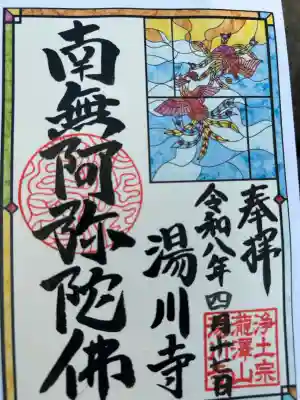 奉拝
令和八年四月十七日
湯川寺
南無阿弥陀佛
浄土宗
瀧澤山